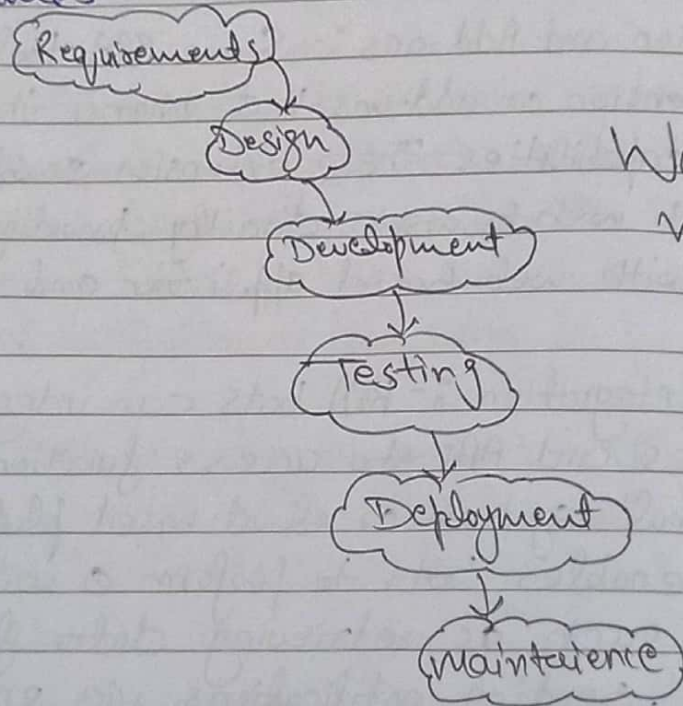 Requirements
Design
Development
Testing
Deployment
Maintaience